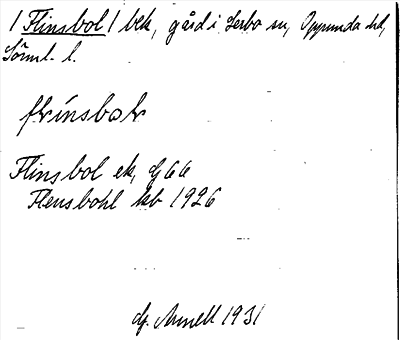 1 Flinsbol 1 bek, gård i Lerbo sn, Oppunda hd,
Sörml. l.
flinsbol
Flinsbol ek, dj 66
Flensbohl kb 1926
dj. Arnell 1931